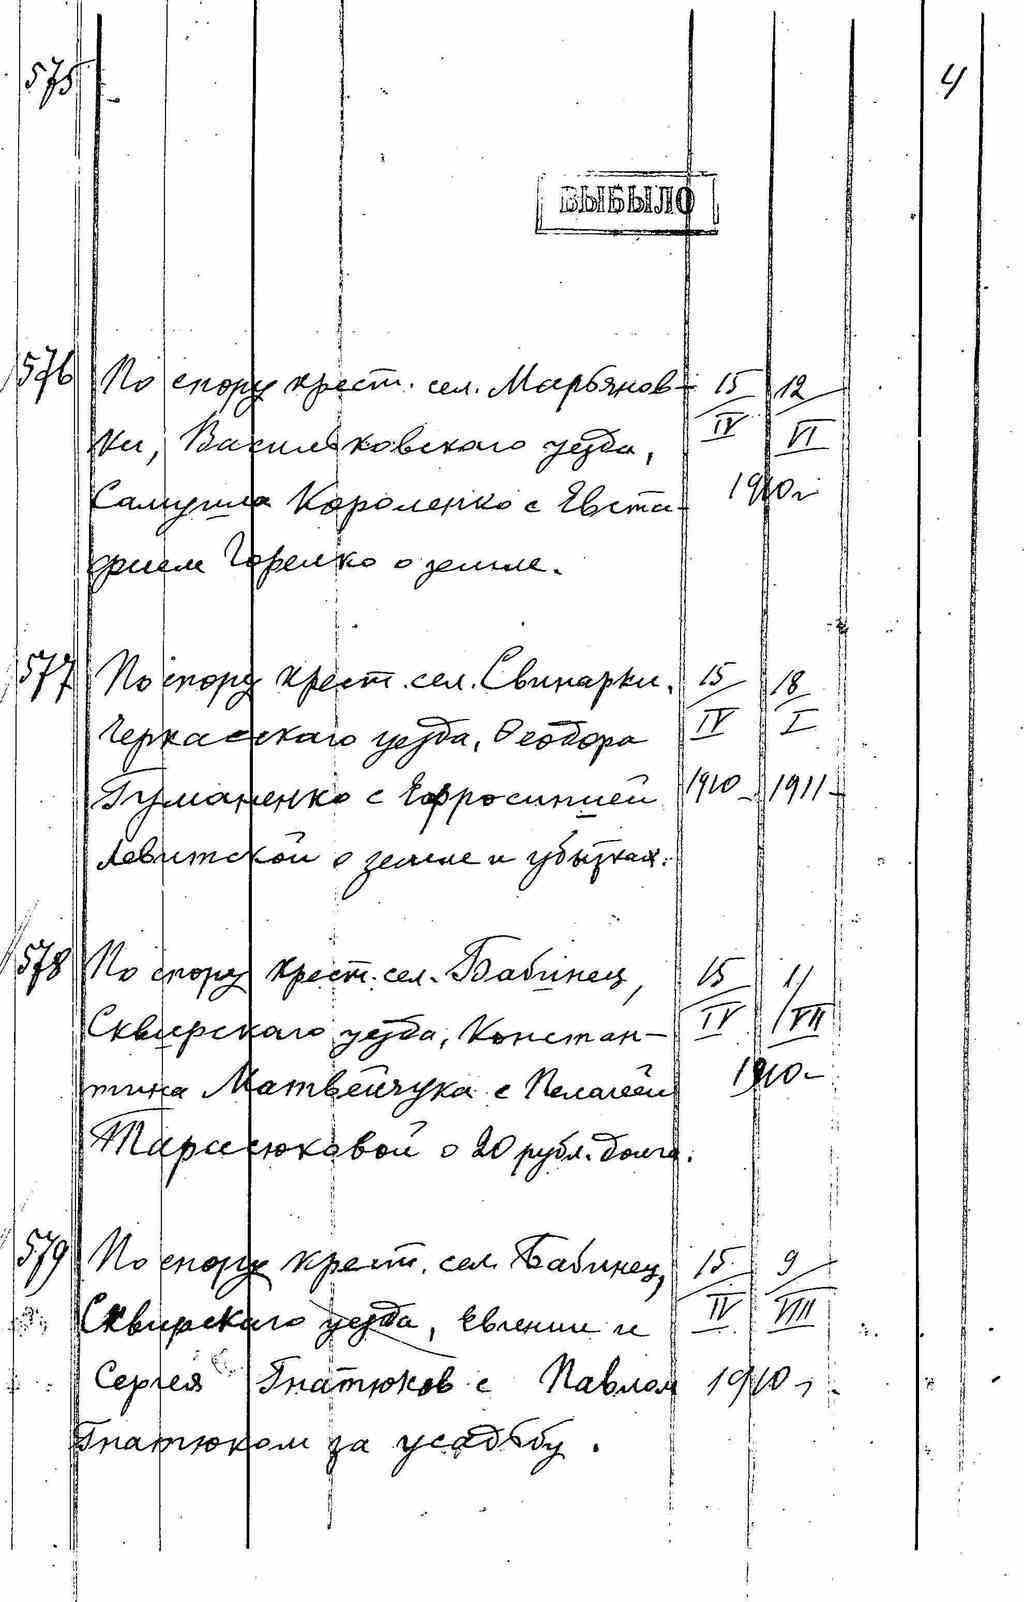 575 4
ВЫБЫЛО
576 По спору крест. сел. Марьянов- 15/IV 12/VI
ки, Васильковского уезда,
Самуила Короленко с Евста- 1910 г.
фием Горелко о земле.
577 По спору крест. сел. Свинарки, 15/IV 18/I
Черкасского уезда, Феодора
Гуманенко с Ефросинией 1910 1911
Левитской о земле и убытках.
578 По спору крест. сел. Бабинец, 15/IV 1/VII
Сквирского уезда, Констан-
тина Матвейчука с Пелагеей 1910
Тарасюковой о 20 рубл. долга.
579 По спору крест. сел. Бабинец, 15/IV 9/VIII
Сквирского уезда, Евгении и
Сергея Гнатюков с Павлом 1910 г.
Гнатюком за усадьбу.